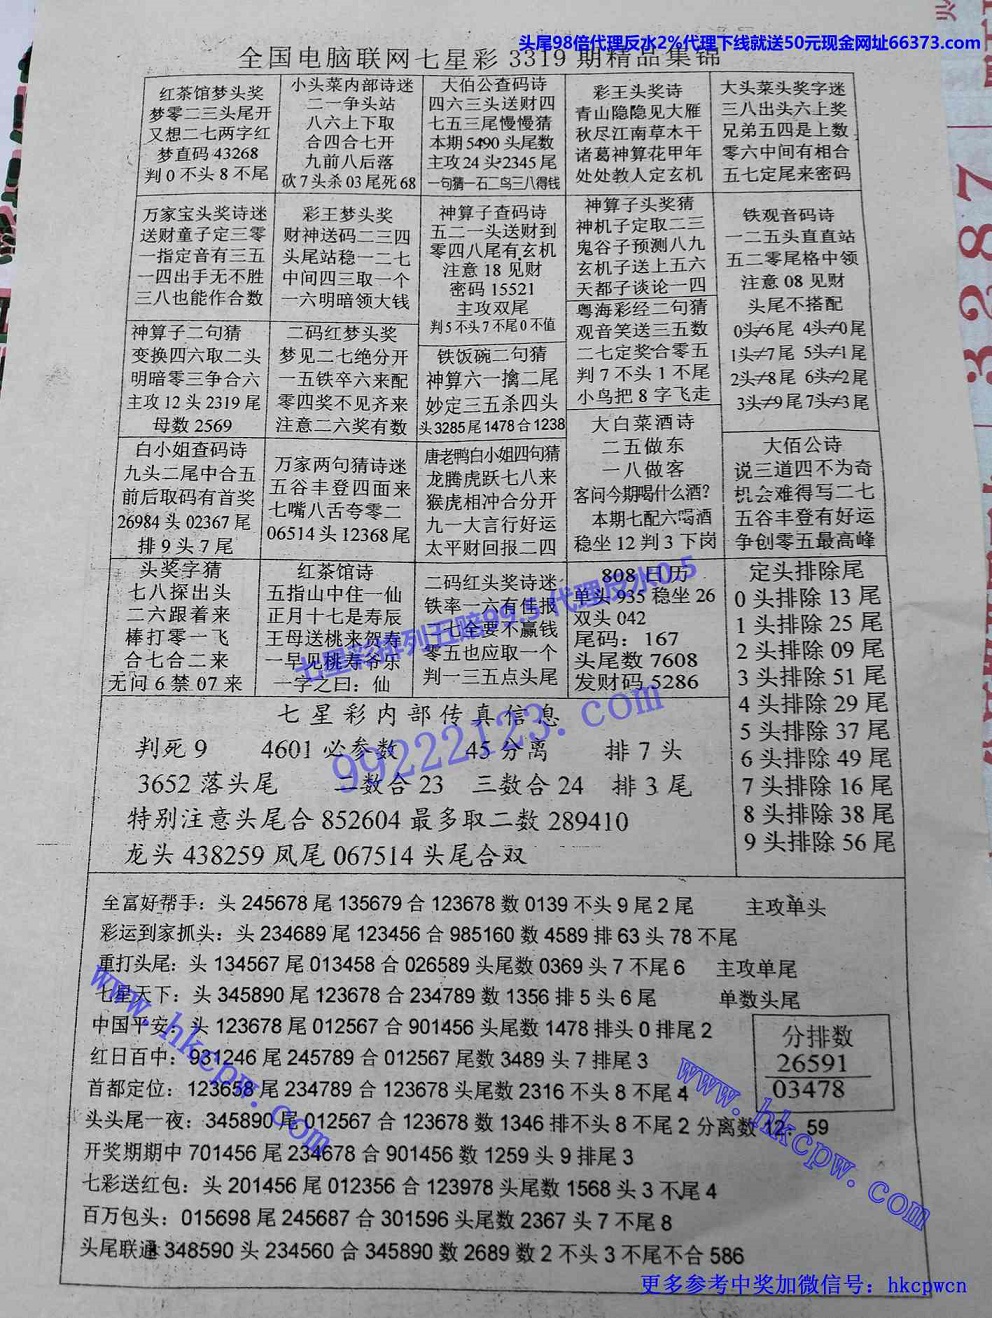 头尾98倍代理反水2%代理下线就送50元现金网址66373.com
全国电脑联网七星彩3319期精品集锦
红茶馆梦头奖
梦零二三头尾开
又想二七两字红
梦直码43268
判0不头8不尾
小头菜内部诗迷
二一争头站
八六上下取
合四合七开
九前八后落
砍7头杀03尾死68
大伯公查码诗
四六三头送财四
七五三尾慢慢猜
本期5490头尾数
主攻24头2345尾
一句猜一石二鸟三八得钱
彩王头奖诗
青山隐隐见大雁
秋尽江南草木干
诸葛神算花甲年
处处教人定玄机
大头菜头奖字迷
三八出头六上奖
兄弟五四是上数
零六中间有相合
五七定尾来密码
万家宝头奖诗迷
送财童子定三零
一指定音有三五
一四出手无不胜
三八也能作合数
彩王梦头奖
财神送码二三四
头尾站稳一二七
中间四三取一个
一六明暗领大钱
神算子查码诗
五二一头送财到
零四八尾有玄机
注意18见财
密码15521
主攻双尾
判5不头7不尾0不值
神算子头奖猜
神机子定取二三
鬼谷子预测八九
玄机子送上五六
天都子谈论一四
铁观音码诗
一二五头直直站
五二零尾格中领
注意08见财
头尾不搭配
0头≠6尾 4头≠0尾
1头≠7尾 5头≠1尾
2头≠8尾 6头≠2尾
3头≠9尾 7头≠3尾
神算子二句猜
变换四六取二头
明暗零三争合六
主攻12头2319尾
母数2569
二码红梦头奖
梦见二七绝分开
一五铁卒六来配
零四奖不见齐来
注意二六奖有数
铁饭碗二句猜
神算六一擒二尾
妙定三五杀四头
头3285尾1478合1238
粤海彩经二句猜
观音笑送三五数
二七定奖合零五
判7不头1不尾
小鸟把8字飞走
白小姐查码诗
九头二尾中合五
前后取码有首奖
26984头02367尾
排9头7尾
万家两句猜诗迷
五谷丰登四面来
七嘴八舌夸零二
06514头12368尾
唐老鸭白小姐四句猜
龙腾虎跃七八来
猴虎相冲合分开
九一大言行好运
太平财回报二四
大白菜酒诗
二五做东
一八做客
客问今期喝什么酒？
本期七配六喝酒
稳坐12判3下岗
大佰公诗
说三道四不为奇
机会难得写二七
五谷丰登有好运
争创零五最高峰
头奖字猜
七八探出头
二六跟着来
棒打零一飞
合七合二来
无问6禁07来
红茶馆诗
五指山中住一仙
正月十七是寿辰
王母送桃来贺寿
一早见桃寿爷乐
一字之曰：仙
二码红头奖诗迷
铁率一六有佳报
一七全要不赢钱
零五也应取一个
判一三五点头尾
808日历
单头935稳坐26
双头042
尾码：167
头尾数7608
发财码5286
定头排除尾
0头排除13尾
1头排除25尾
2头排除09尾
3头排除51尾
4头排除29尾
5头排除37尾
6头排除49尾
7头排除16尾
8头排除38尾
9头排除56尾
七星彩排列五赔99.5代理反水0.5
99222123.com
七星彩内部传真信息
判死9 4601必参数 45分离 排7头
3652落头尾 二数合23 三数合24 排3尾
特别注意头尾合852604最多取二数289410
龙头438259凤尾067514头尾合双
全富好帮手：头245678尾135679合123678数0139不头9尾2尾 主攻单头
彩运到家抓头：头234689尾123456合985160数4589排63头78不尾
重打头尾：头134567尾013458合026589头尾数0369头7不尾6 主攻单尾
七星天下：头345890尾123678合234789数1356排5头6尾 单数头尾
中国平安：头123678尾012567合901456头尾数1478排头0排尾2
红日百中：931246尾245789合012567尾数3489头7排尾3
首都定位：123658尾234789合123678头尾数2316不头8不尾4
头头尾一夜：345890尾012567合123678数1346排不头8不尾2分离数12：59
开奖期期中701456尾234678合901456数1259头9排尾3
七彩送红包：头201456尾012356合123978头尾数1568头3不尾4
百万包头：015698尾245687合301596头尾数2367头7不尾8
头尾联通348590头234560合345890数2689数2不头3不尾不合586
分排数
26591
03478
www.hkcpw.com
www.hkcpw.com
更多参考中奖加微信号：hkcpwcn
3287